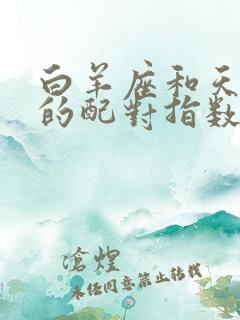 白羊座和天
的配對指数
滄煌
未经同意禁止转载